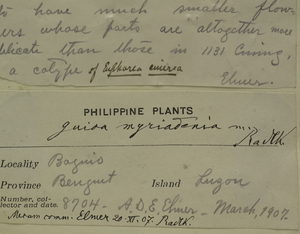 to have much smaller flow
ers whose parts are altogether more
delicate than those in 1131 Cuming,
a cotype of Euphorea cinerea
Elmer.
PHILIPPINE PLANTS
Guioa myriadenia n. Radlk.
Locality Baguio
Province Benguet Island Luzon
Number, col-
lector and date. 8704 - A.D.E. Elmer - March, 1907.
comm. Elmer 20 XI. 07. Radlk.